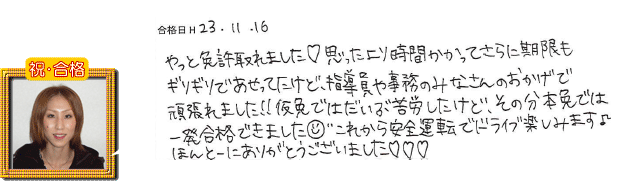 合格日 H 23.11.16
祝・合格
やっと免許取れました♡思ったより時間かかってさらに期限も
ギリギリであせってたけど、指導員や事務のみなさんのおかげで
頑張れました!!仮免ではだいぶ苦労したけど、その分本免では
一発合格できました☺これから安全運転でドライブ楽しみます♪
ほんとーにありがとうございました♡♡♡